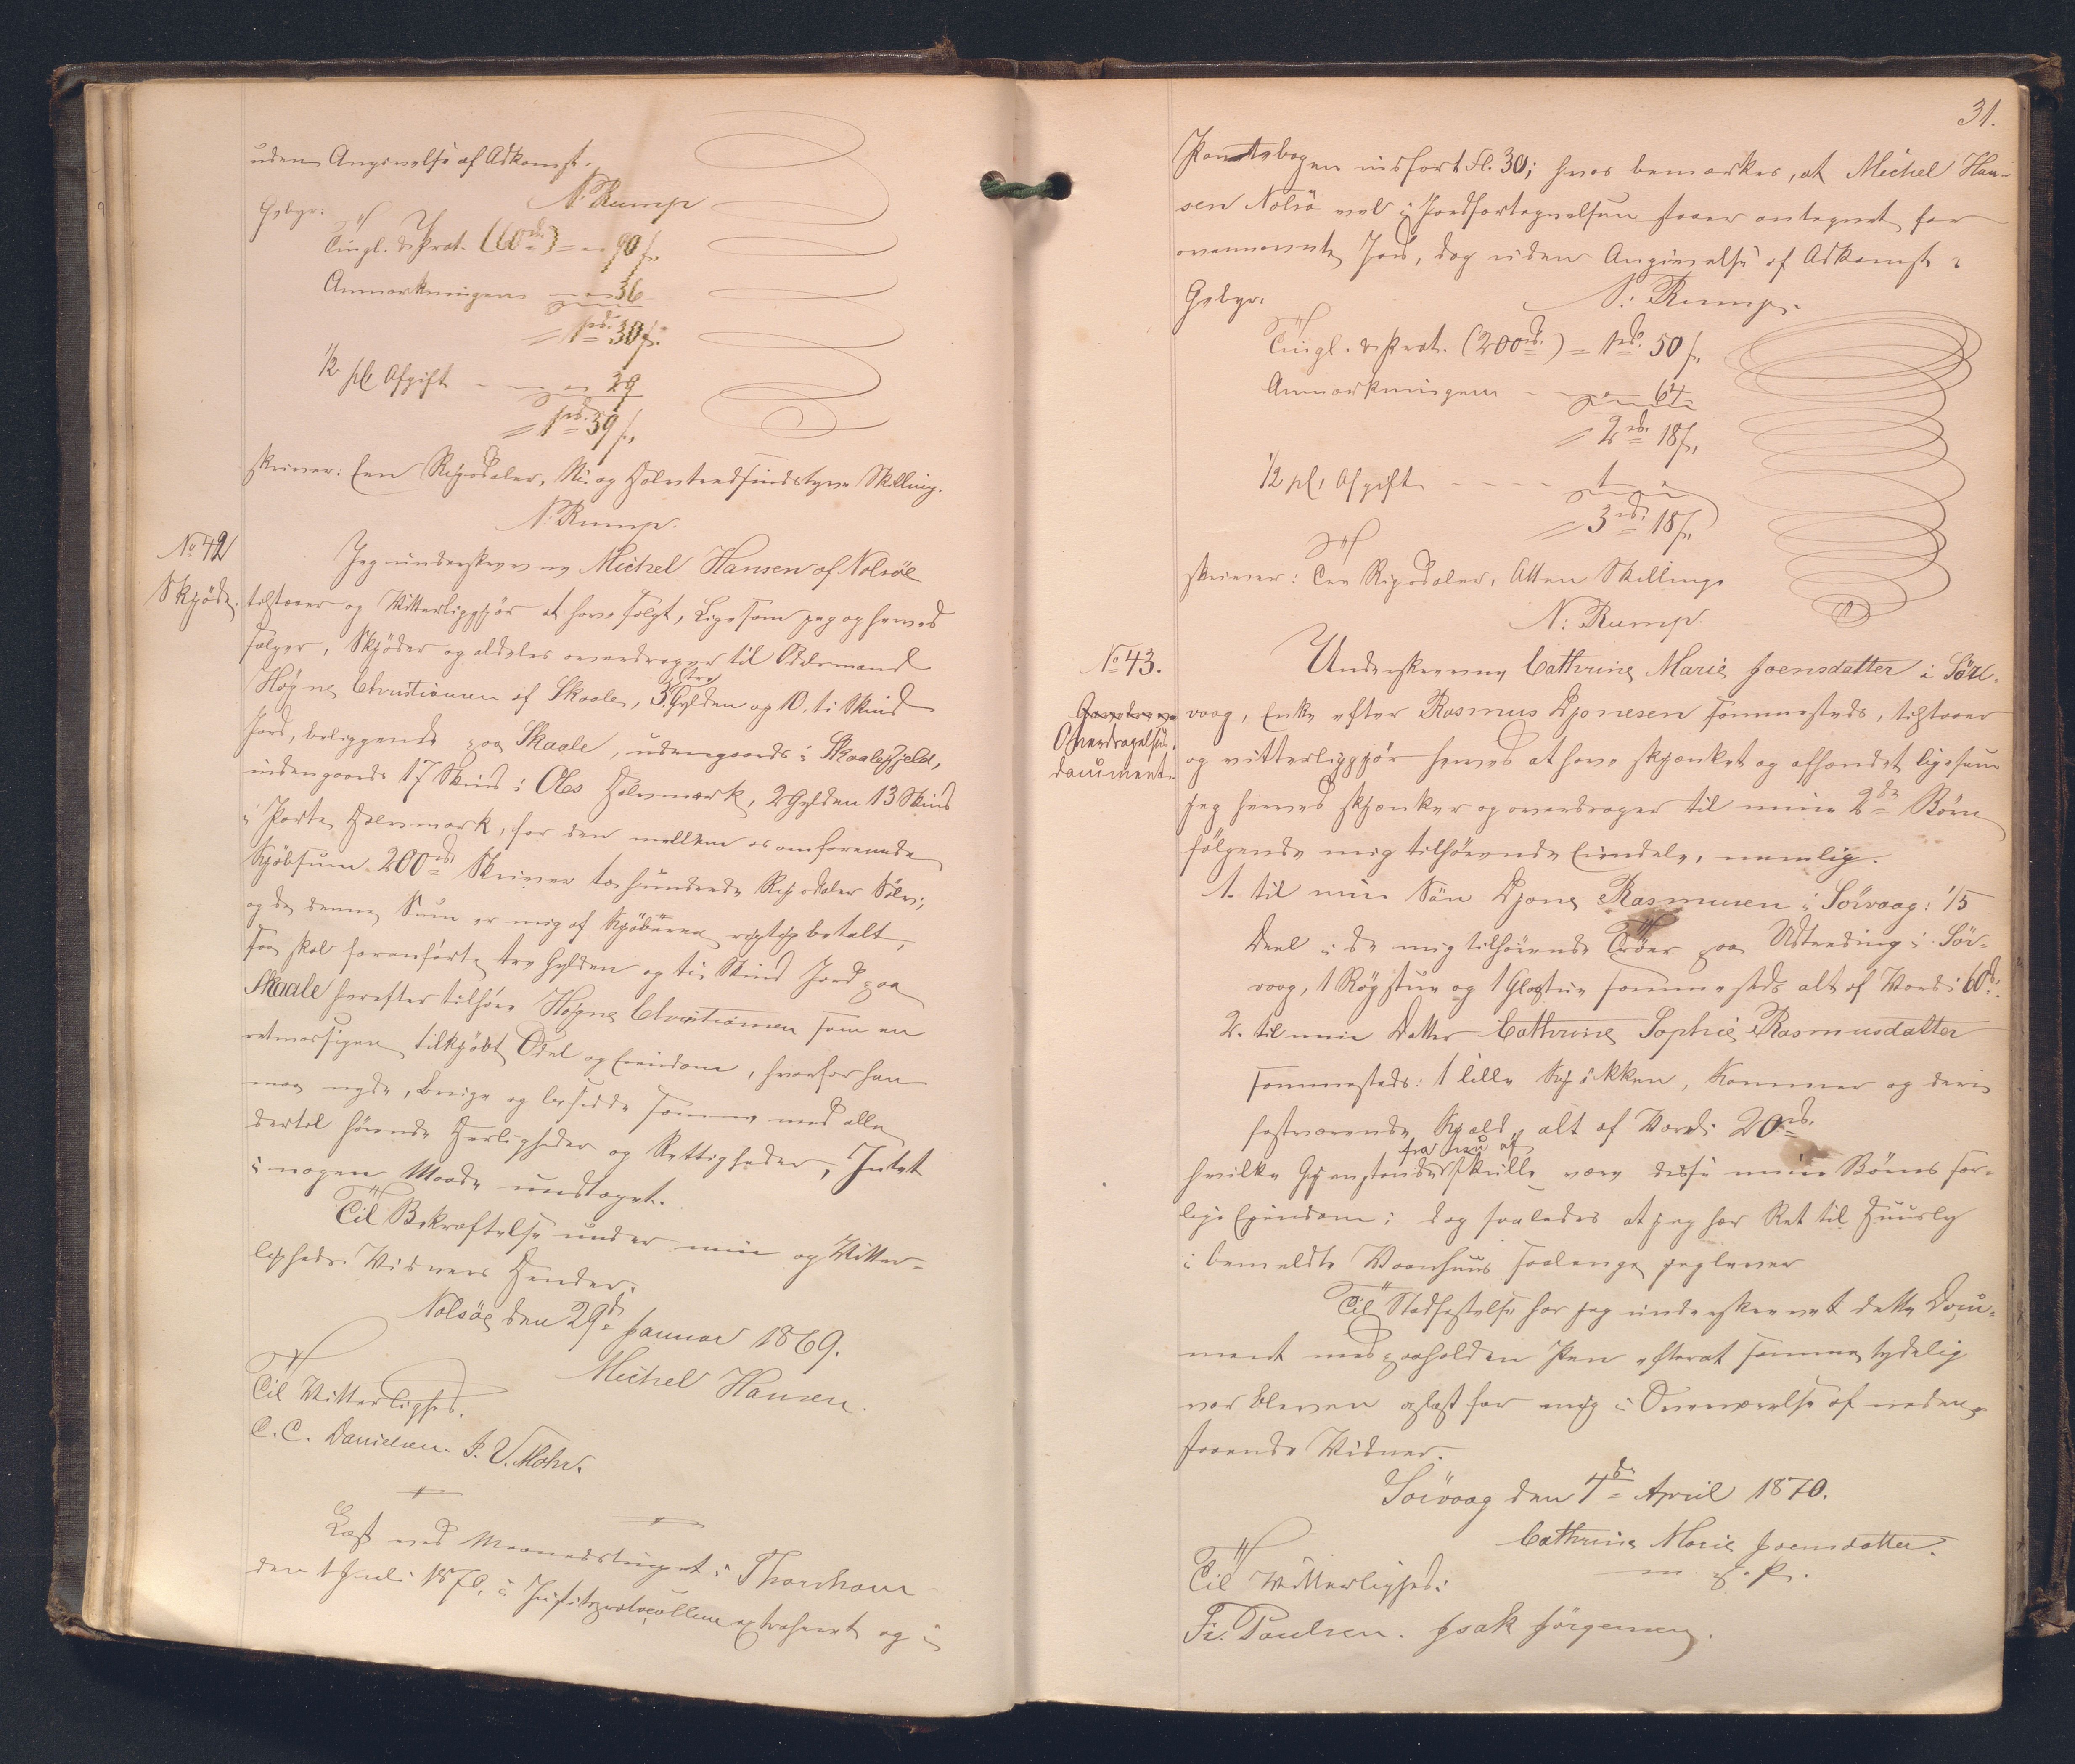 uden Angivelse af Adkomst.
N. Rump
Gebyr:
Tingl. & Prot. (60 rd.) = " 90 s.
Anmærkningen — " 36 -
= 1 rd. 30 s.
1/2 pCt Afgift — — " 29
= 1 rd. 59 s.
skriver: Een Rigsdaler, Ni og Halvtredsindstyve Skilling.
N. Rump.
No 42
Skjøde.
Jeg underskrevne Michel Hansen af Nolsøe
tilstaaer og Vitterliggjør at have solgt, ligesom jeg og herved
sælger, Skjøder og aldeles overdrager til Odelsmand
Høgne Christiansen af Skaale, 3 tre Gylden og 10, ti Skind
Jord, beliggende paa Skaale, udengaards i Skaalefjeld,
indengaards 17 Skind i Oles Halvmark, 2 Gylden 13 Skind
i Halvmark, for den mellem os omforenede
Kjøbsum 200 rd. Skriver to hundrede Rigsdaler Sølv;
og da denne Sum er mig af Kjøberen rigtig betalt,
saa skal foranførte tre Gylden og ti Skind Jord paa
Skaale herefter tilhøre Høgne Christiansen som en
retmæssigen tilkjøbt Odel og Eiendom, hvorfor han
maa nyde, bruge og besidde samme med alle
dertil hørende Herligheder og Rettigheder, Intet
i nogen Maade undtaget.
Til Bekræftelse under min og Vitter-
ligheds Vidners Hænder.
Nolsøe den 29de Januar 1869.
Michel Hansen.
Til Vitterlighed.
C. C. Danielsen. J. V. Mohr.
Læst ved Maanedstinget i Thorshavn
den 1 Juli 1870, i Justitsprotocollen extraheret og i
31.
Pantebogen indført Fl. 30; hvor bemærkes, at Michel Han-
sen Nolsø vel i Jordfortegnelsen staaer antegnet for
ovennævnte Jord, dog uden Angivelse af Adkomst.
Gebyr:
N. Rump.
Tingl. & Prot. (200 rd.) = 1 rd. 50 s.
Anmærkningen - - - " 64 -
= 2 rd. 18 s.
1/2 pCt Afgift - - - - 1 "
= 3 rd. 18 s.
skriver: Tre Rigsdaler, Atten Skilling.
N. Rump.
No 43.
Overdragelses-
document.
Underskrevne Cathrine Marie Joensdatter i Sør-
vaag, Enke efter Rasmus Djonesen sammesteds, tilstaaer
og vitterliggjør herved at have skjænket og afhændet ligesom
jeg herved skjænker og overdrager til mine 2de Børn
følgende mig tilhørende Eiendele, nemlig.
1. til min Søn Djone Rasmusen i Sørvaag: 1/5
Deel i de mig tilhørende Tröer paa Udtræding i Sør-
vaag, 1 Røgstue og 1 Glastue sammesteds alt af Værdi 60 rd.
2. til min Datter Cathrine Sophie Rasmusdatter
sammesteds: 1 lille Kjøkken, Kammer og deri
fastværende Kjæld, alt af Værdi 20 rd.
hvilke Gjenstande fra nu af skulle være disse mine Børns for-
lige Eiendom; dog saaledes at jeg har Ret til Huusly
i bemeldte Vaanhuus saalænge jeg lever
Til Stadfæstelse har jeg underskrevet dette Docu-
ment med paaholden Pen efterat samme tydelig
var bleven oplæst for mig i Overværelse af neden-
staaende Vidner.
Sørvaag den 7de April 1870.
Cathrine Marie Joensdatter.
m. f. P.
Til Vitterlighed:
Fr. Poulsen. Jsak Jörgensen.